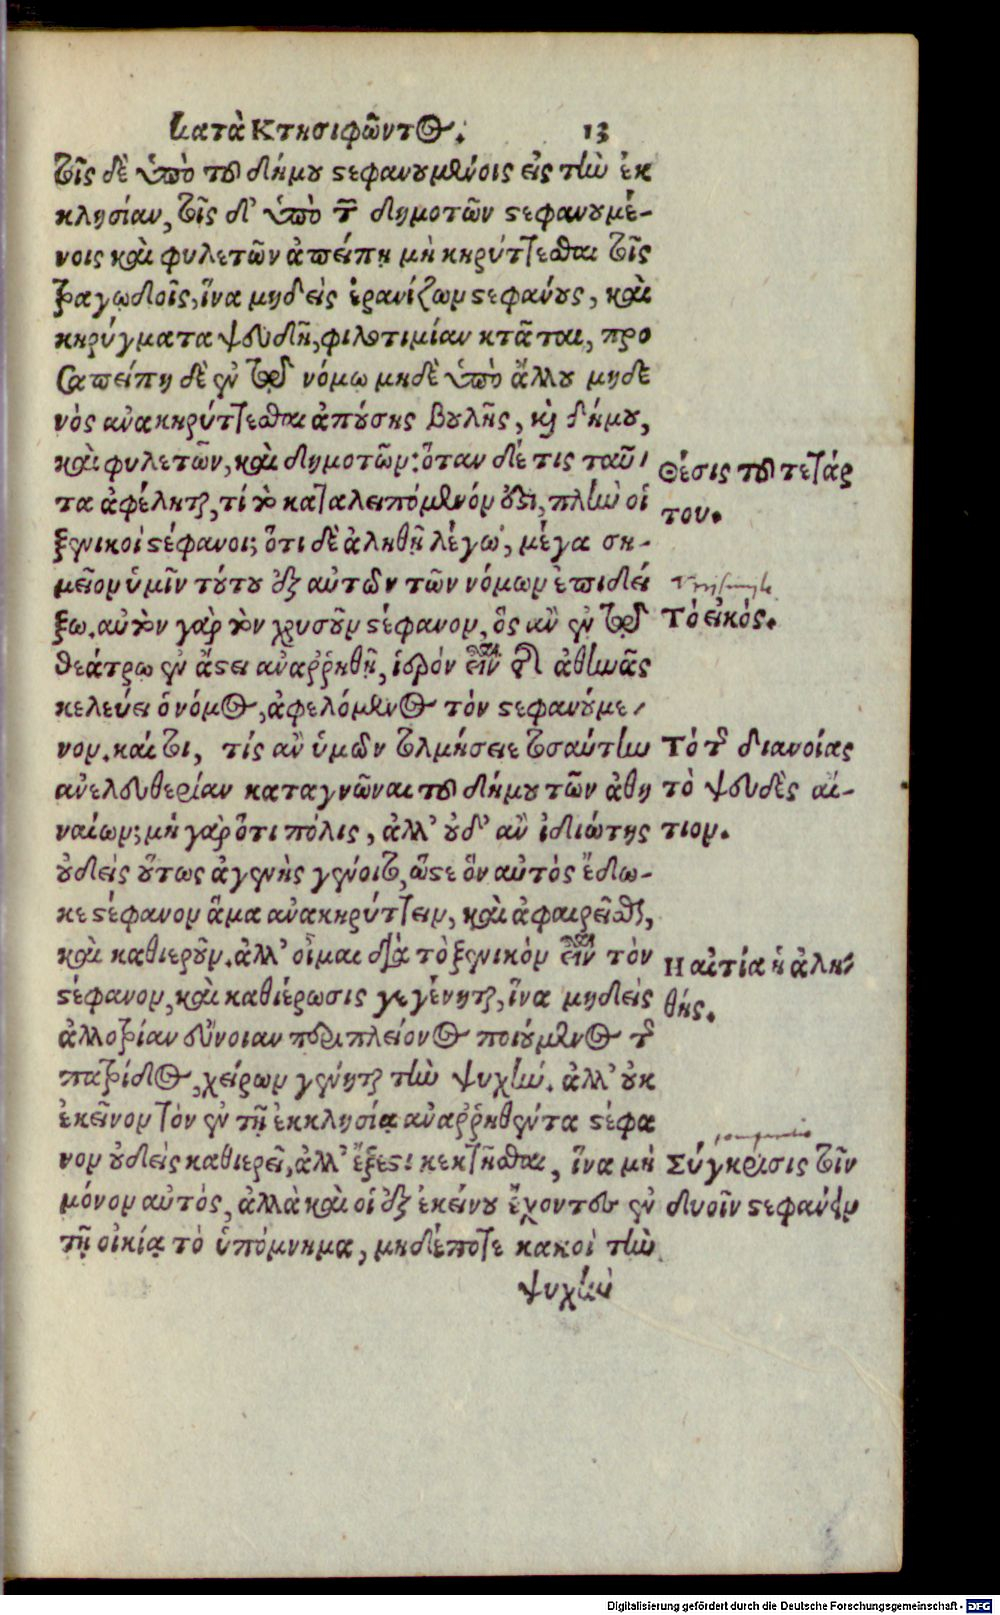 κατὰ Κτησιφῶντος. 13
τοῖς δὲ ὑπὸ τοῦ δήμου στεφανουμένοις εἰς τὴν ἐκ
κλησίαν, τοῖς δ' ὑπὸ τῶν δημοτῶν στεφανουμέ-
νοις καὶ φυλετῶν ἀπείπῃ μὴ κηρύττεσθαι τοῖς
τραγῳδοῖς, ἵνα μηδεὶς ἐρανίζων στεφάνους, καὶ
κηρύγματα ψευδῆ, φιλοτιμίαν κτᾶται, προ
σαπείπῃ δὲ ἐν τῷ νόμῳ μηδὲ ὑπὸ ἄλλου μηδε
νὸς ἀνακηρύττεσθαι ἀπούσης βουλῆς, καὶ δήμου,
καὶ φυλετῶν, καὶ δημοτῶν: ὅταν δέ τις ταῦ-
τα ἀφέληται, τί τὸ καταλειπόμενόν ἐστι, πλὴν οἱ
ξενικοὶ στέφανοι; ὅτι δὲ ἀληθῆ λέγω, μέγα ση-
μεῖον ὑμῖν τούτου ἐξ αὐτῶν τῶν νόμων ἐπιδεί
ξω. αὐτὸν γὰρ τὸν χρυσοῦν στέφανον, ὃς ἂν ἐν τῷ
θεάτρῳ ἐν ἄστει ἀναῤῥηθῇ, ἱερὸν εἶναι τῆς ἀθηνᾶς
κελεύει ὁ νόμος, ἀφελόμενος τὸν στεφανούμε-
νον. καίτοι, τίς ἂν ὑμῶν τολμήσειε τοσαύτην
ἀνελευθερίαν καταγνῶναι τοῦ δήμου τῶν ἀθη
ναίων; μὴ γὰρ ὅτι πόλις, ἀλλ' οὐδ' ἂν ἰδιώτης
οὐδεὶς οὕτως ἀγενὴς γένοιτο, ὥστε ὃν αὐτὸς ἔδω-
κε στέφανον ἅμα ἀνακηρύττειν, καὶ ἀφαιρεῖσθαι,
καὶ καθιεροῦν. ἀλλ' οἶμαι διὰ τὸ ξενικὸν εἶναι τὸν
στέφανον, καὶ καθιέρωσις γεγένηται, ἵνα μηδεὶς
ἀλλοτρίαν εὔνοιαν περὶ πλείονος ποιούμενος τῆς
πατρίδος, χείρων γένηται τὴν ψυχήν. ἀλλ' οὐκ
ἐκεῖνον τὸν ἐν τῇ ἐκκλησίᾳ ἀναῤῥηθέντα στέφα
νον οὐδεὶς καθιεροῖ, ἀλλ' ἔξεστι κεκτῆσθαι, ἵνα μὴ
μόνον αὐτὸς, ἀλλὰ καὶ οἱ ἐξ ἐκείνου ἔχοντες ἐν
τῇ οἰκίᾳ τὸ ὑπόμνημα, μηδέποτε κακοὶ τὴν
ψυχὴν
Θέσις τοῦ τετάρ
του.
Τὸ εἰκὸς.
Τὸ τῆς διανοίας
τὸ ψευδὲς αἴ-
τιον.
Η αἰτία ἡ ἀλη-
θής.
Σύγκρισις τοῖν
δυοῖν στεφάνων
Digitalisierung gefördert durch die Deutsche Forschungsgemeinschaft - DFG